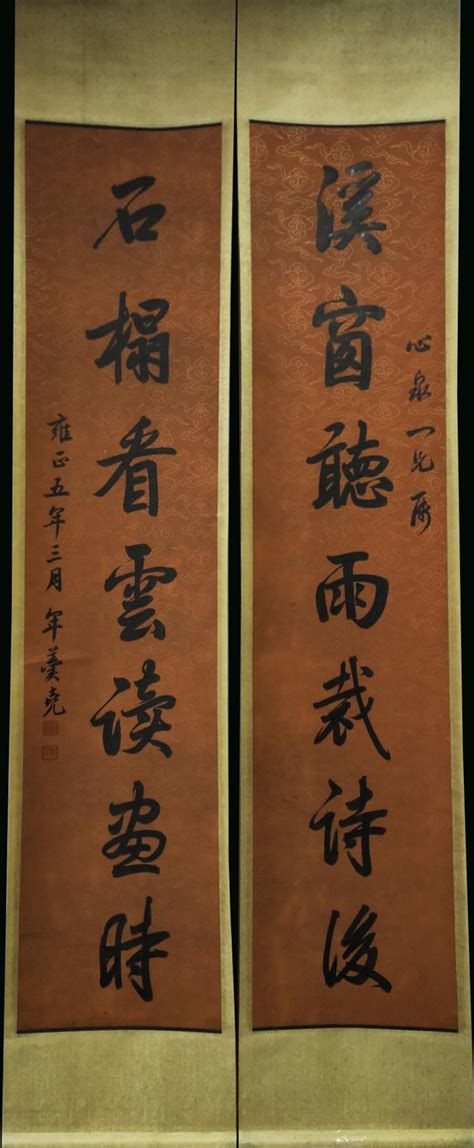 心泉一兄属
溪窗聽雨裁詩後
石榻看雲读畫時
雍正五年三月 年羹尧